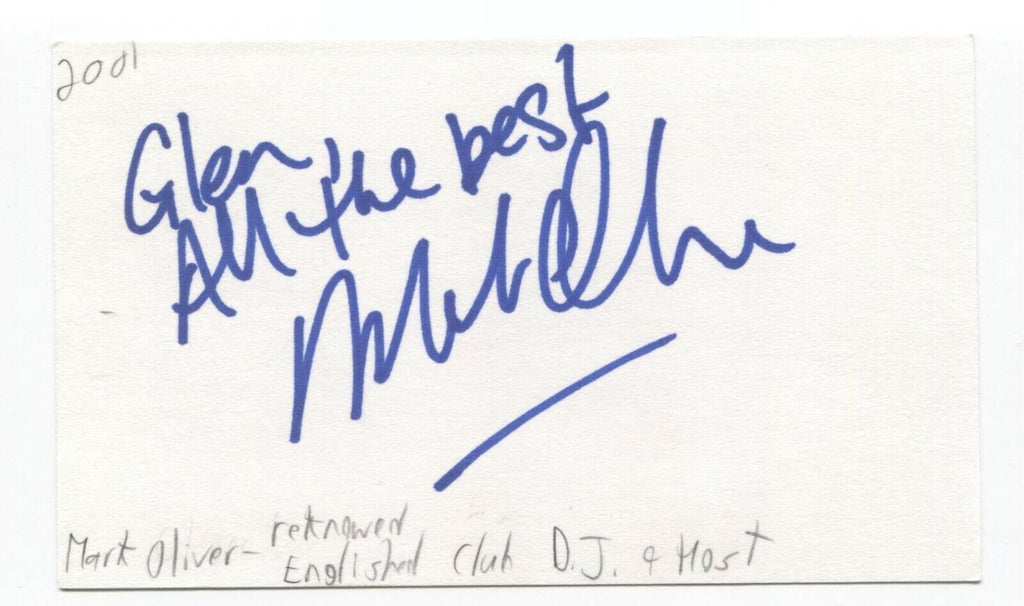 2001
Glen
All the best
Mark Oliver
Mark Oliver - reknowned
English Club D.J. & Host